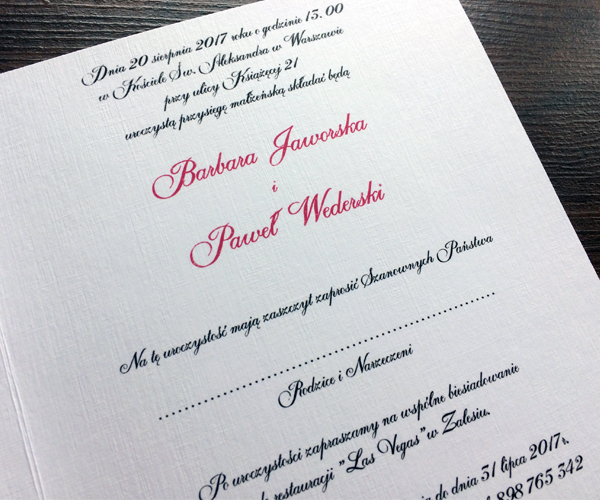 Dnia 20 sierpnia 2017 roku o godzinie 15.00
w Kościele Św. Aleksandra w Warszawie
przy ulicy Książęcej 21
uroczystą przysięgę małżeńską składać będą
Barbara Jaworska
i
Paweł Wederski
Na tę uroczystość mają zaszczyt zaprosić Szanownych Państwa
........................................................
Rodzice i Narzeczeni
Po uroczystości zapraszamy na wspólne biesiadowanie
restauracji "Las Vegas" w Zalesiu.
do dnia 31 lipca 2017r.
898 765 342